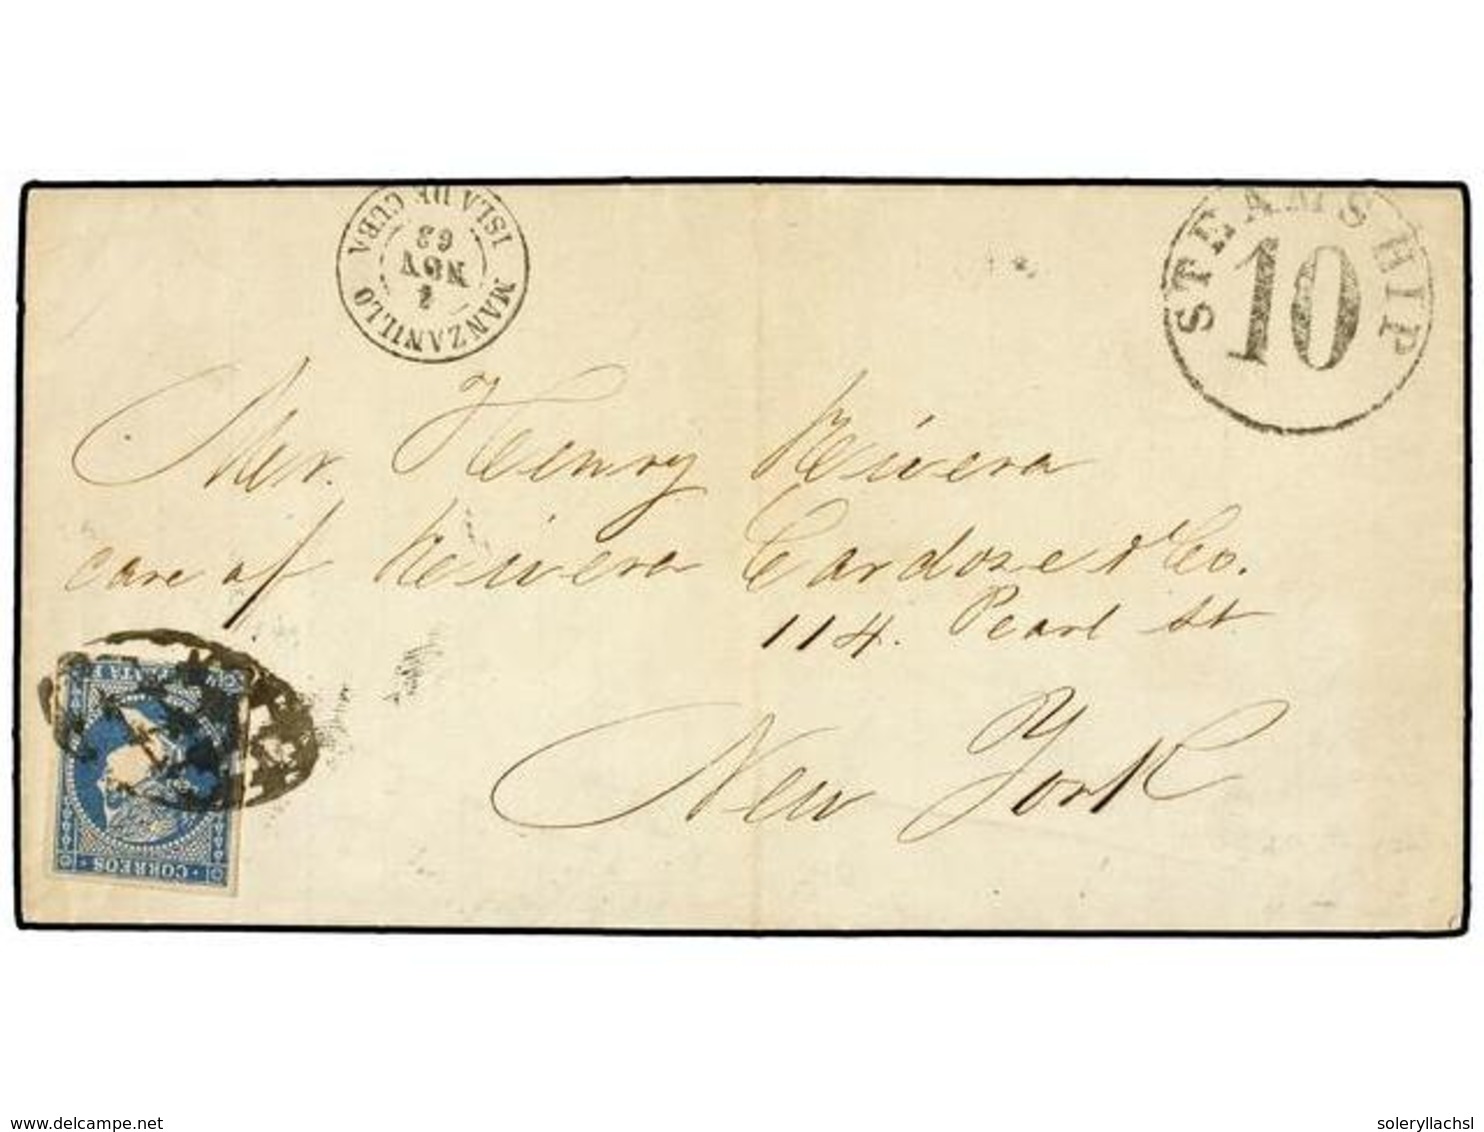 MANZANILLO
ISLA DE CUBA
NOV
63
STEAMSHIP
10
Mr. Henry Rivera
care of Rivera Cardoze & Co.
114. Pearl St
New York
CORREOS
delcampe.net
soleryllachsl